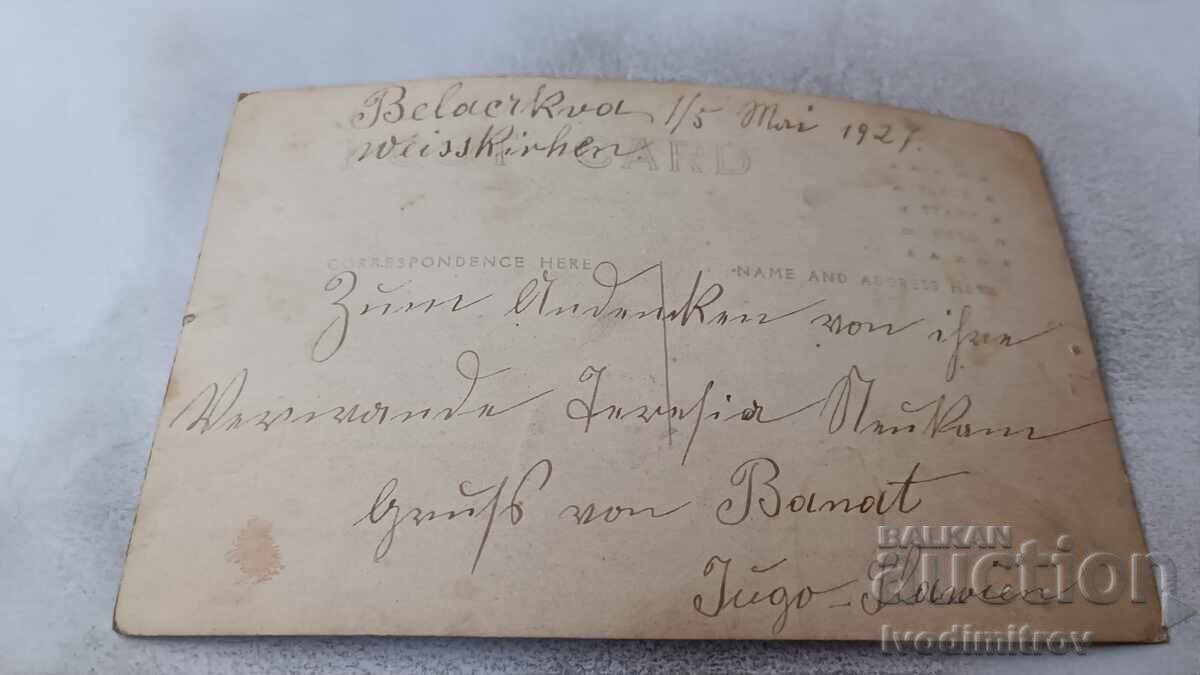 Belacrkva 1/5 Mai 1927.
Weisskirhen
CARD
CORRESPONDENCE HERE
NAME AND ADDRESS HERE
Zum Andenken von ihre
Verwande Teresia Neukam
Gruss von Banat
Jugo-Slawien
BALKAN
auction
Ivodimitrov